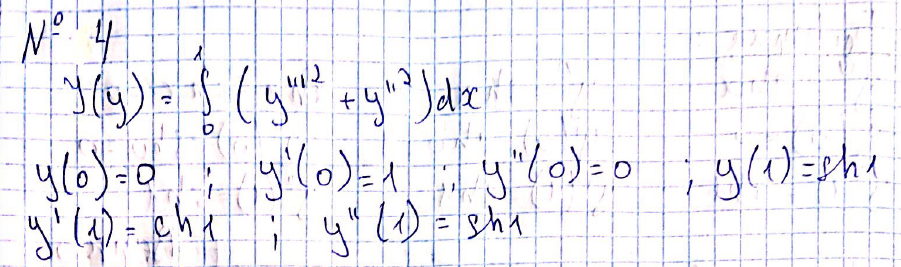 № 4
J(y) = ∫₀¹ (y'''² + y''²) dx
y(0)=0 ; y'(0)=1 ; y''(0)=0 ; y(1)=sh1
y'(1)=ch1 ; y''(1)=sh1